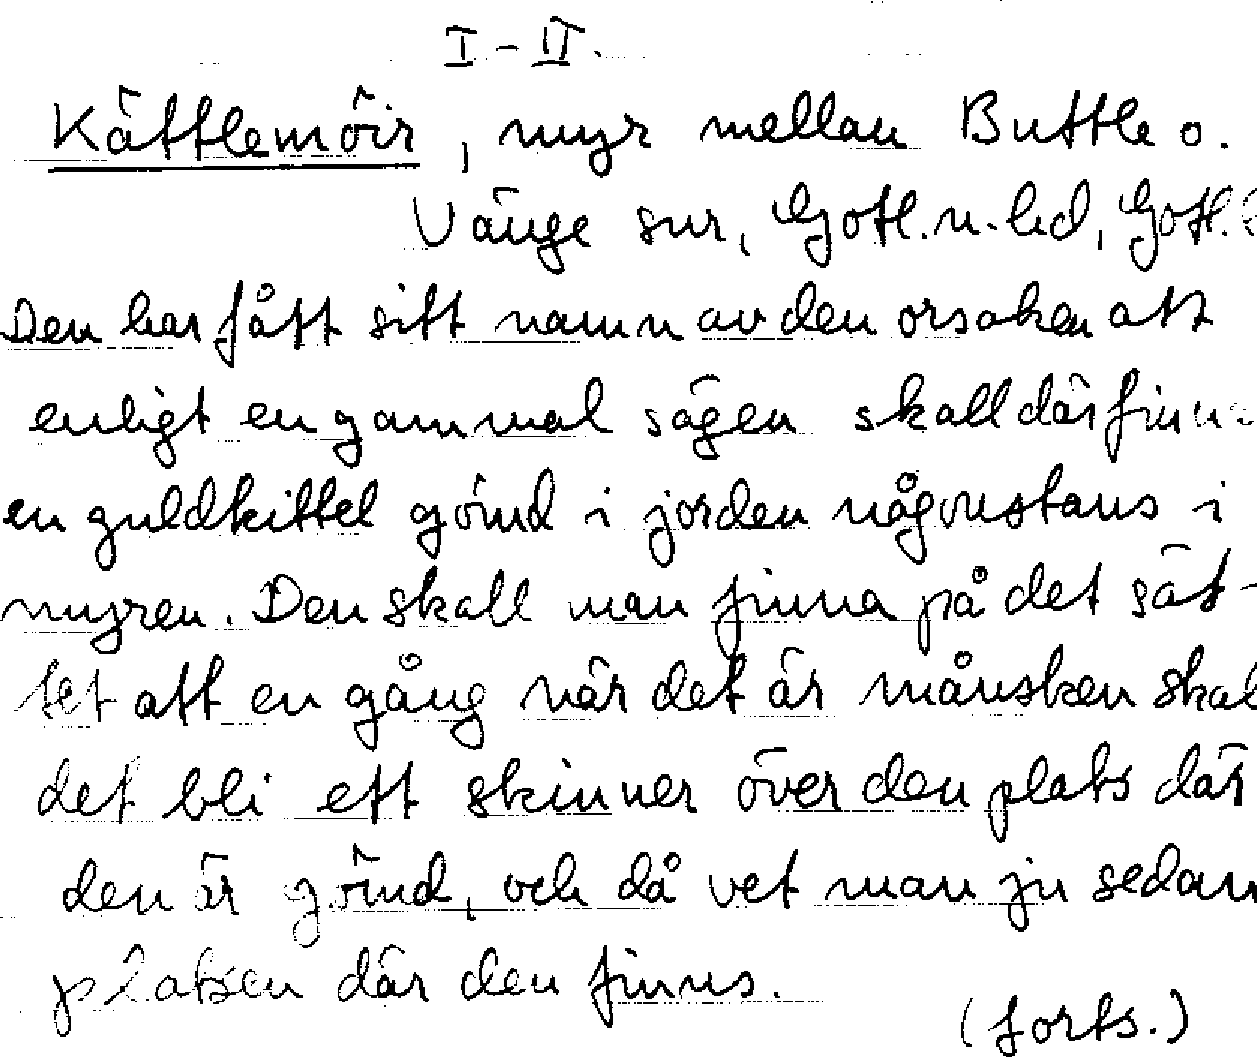 I-II.
Kättlemöir, myr mellan Buttle o.
Vänge snr, Gotl. n. hd, Gotl.
Den har fått sitt namn av den orsaken att
enligt en gammal sägen skall där finn
en guldkittel gömd i jorden någonstans i
myren. Den skall man finna på det sät-
tet att en gång när det är månsken skal
det bli ett skinner över den plats där
den är gömd, och då vet man ju sedan
platsen där den finns.
(forts.)